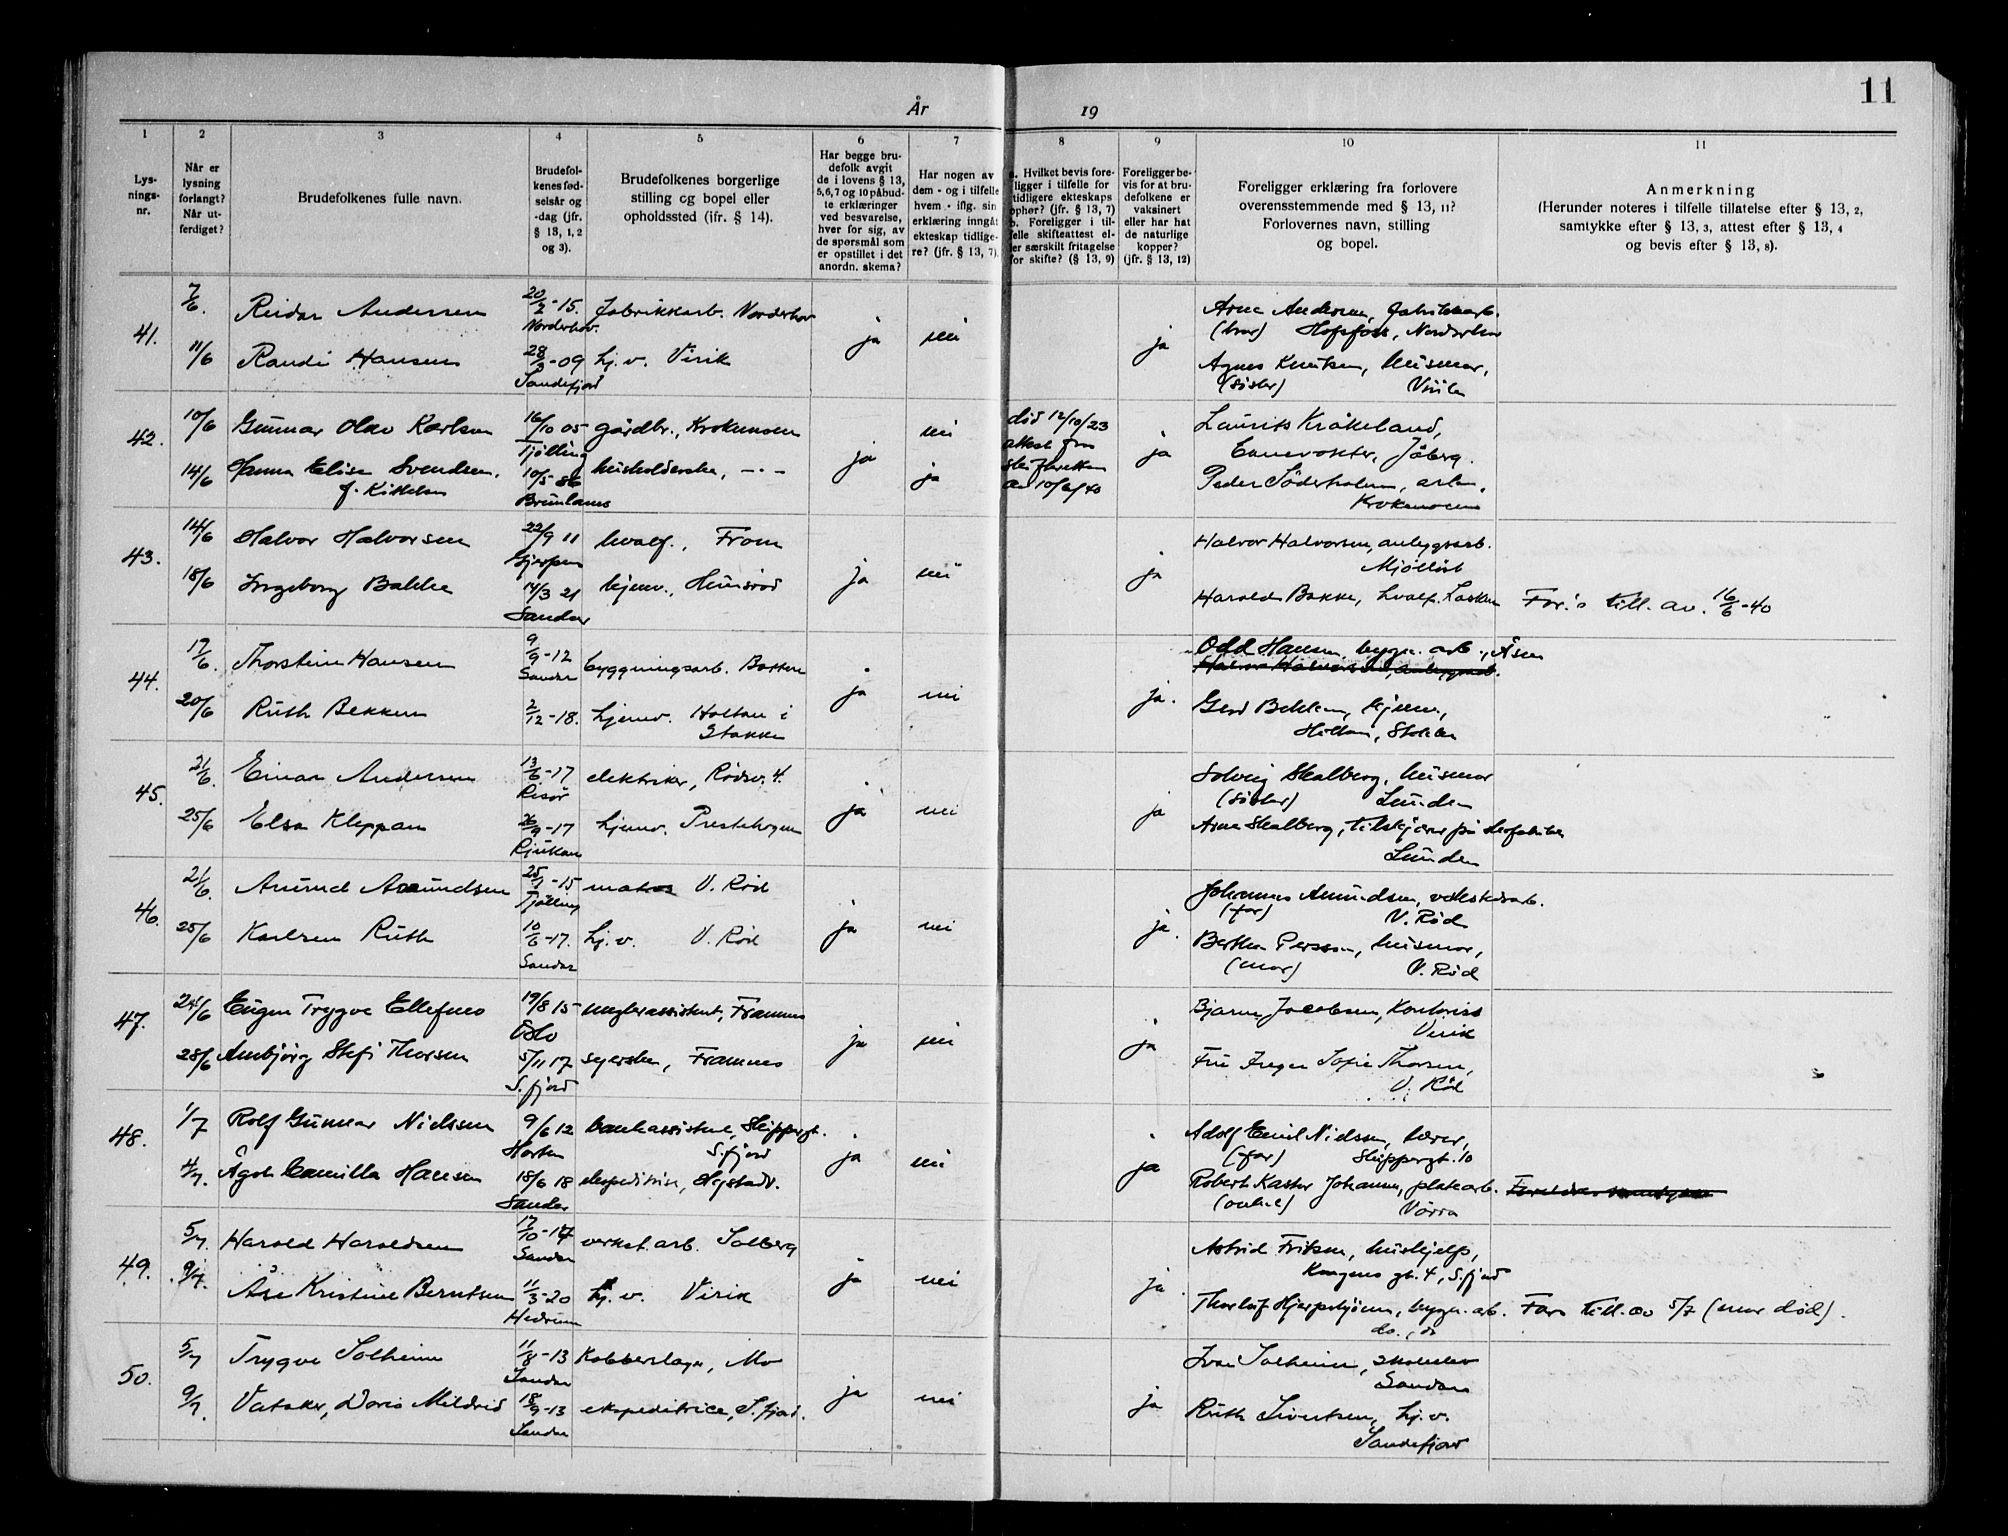 11
År 19
1 2 3 4 5 6 7 8 9 10 11
Lysningsnr.
Når er lysning forlangt? Når utferdiget?
Brudefolkenes fulle navn.
Brudefolkenes fødselsår og -dag (jfr. § 13, 1, 2 og 3).
Brudefolkenes borgerlige stilling og bopel eller opholdssted (jfr. § 14).
Har begge brudefolk avgit de i lovens § 13, 5, 6, 7 og 10 påbudte erklæringer ved besvarelse, hver for sig, av de spørsmål som er opstillet i det anordn. skema?
Har nogen av dem - og i tilfelle hvem - iflg. sin erklæring inngått ekteskap tidligere? (jfr. § 13, 7).
a. Hvilket bevis foreligger i tilfelle for tidligere ekteskaps ophør? (jfr. § 13, 7) b. Foreligger i tilfelle skifteattest eller særskilt fritagelse for skifte? (§ 13, 9)
Foreligger bevis for at brudefolkene er vaksinert eller har hat de naturlige kopper? (jfr. § 13, 12)
Foreligger erklæring fra forlovere overensstemmende med § 13, 11? Forlovernes navn, stilling og bopel.
Anmerkning (Herunder noteres i tilfelle tillatelse efter § 13, 2, samtykke efter § 13, 3, attest efter § 13, 4 og bevis efter § 13, 8).
41. 7/6. Reidar Andersen 20/2-15. Norderhov. fabrikkarb. Norderhov ja nei ja Arne Andersen, fabrikkarb.
(bror) Hofsfoss, Norderhov
11/6 Randi Hansen 28/3-09 Sandefjord hj.v. Virik Agnes Knutsen, husmor,
(søster) Virik
42. 10/6 Gunnar Olav Karlsen 16/10 05 Tjølling gårdbr., Krokemoen ja nei død 12/10/23 ja Laurits Kråkeland,
attest fra Jåberg.
14/6 Hanna Elise Svendsen, 10/5-86 husholderske, -·- ja skifteretten Peder Söderholm, arb.,
f. Kittelsen Brunlanes av 10/6/40 Krokemoen
43. 14/6 Halvor Halvorsen 22/9 11 Gjerpen hvalf., Fram ja nei ja Halvor Halvorsen, anlegsarb.
18/6 Ingeborg Bakke 14/3 21 Sandar hjemv., Hunsrød Harald Bakke, hvalf. Lasken Far's till. av. 16/6-40
44. 17/6. Thorstein Hansen 9/9-12 Sandar byggningsarb. ja nei ja. Odd Hansen, bygn. arb., Åsen
Halvor Halvorsen, anlegsarb.
20/6 Ruth Bekken 2/12-18. hjemv. Holtan i Stokke Gerd Bekken, hjemv.,
Holtan, Stokke
45. 21/6. Einar Andersen 13/6-17 Risør elektriker, Rødsv. 4. ja nei ja Solveig Skalberg, husmor
(søster) Lunden
25/6 Elsa Kleppan 26/9-17 Rjukan hjemv. Prestehagen Arne Skalberg, tilskjærer på skofabrikk
Lunden
46. 21/6. Amund Amundsen 25/1-15 Tjølling matros V. Rød ja nei ja. Johannes Amundsen, verkstedarb.
(far) V. Rød
25/6 Karlsen Ruth 10/6-17. Sandar hj.v. V. Rød Bertha Persson, husmor,
(mor) V. Rød
47. 24/6 Eugen Trygve Ellefsens 19/8 15 Oslo meglerassistent, Framnes ja nei ja Bjarne Jacobsen, Kontorist
Virik
28/6 Ambjørg Stefi Thorsen 5/11 17 S.fjord syerske, Framnes Fru Inger Sofie Thorsen,
V. Rød
48. 1/7 Rolf Gunnar Nielsen 9/6 12 Horten bankassistent, Skippergt. S.fjord ja nei ja Adolf Emil Nielsen, lærer,
(far) Skippergt. 10
4/7. Ågot Camilla Hansen 18/6 18 Sandar ekspeditrise, Nystadv. Robert Kaster Johansen, platearb. Foreldres samtykke
(onkel) Vørra
49. 5/7. Harald Haraldsen 17/10-17 Sandar verkst.arb. Solberg ja nei ja. Astrid Eriksen, hushjelp,
Kongens gt. 4, S.fjord
9/7. Åse Kristine Berntsen 11/3-20 Hedrum hj.v. Virik Thorleif Hjerpekjønn, bygn. arb. Fars till. av 5/7 (mor død).
do., do
50. 5/7 Trygve Solheim 11/8-13 Sandar Kobberslager, Mo ja nei ja Ivar Solheim, skoleelev
Sandar
9/7. Vataker, Doris Mildrid 18/9-13 Sandar ekspeditrice, S.fjord. Ruth Sivertsen, hj.v.
Sandefjord